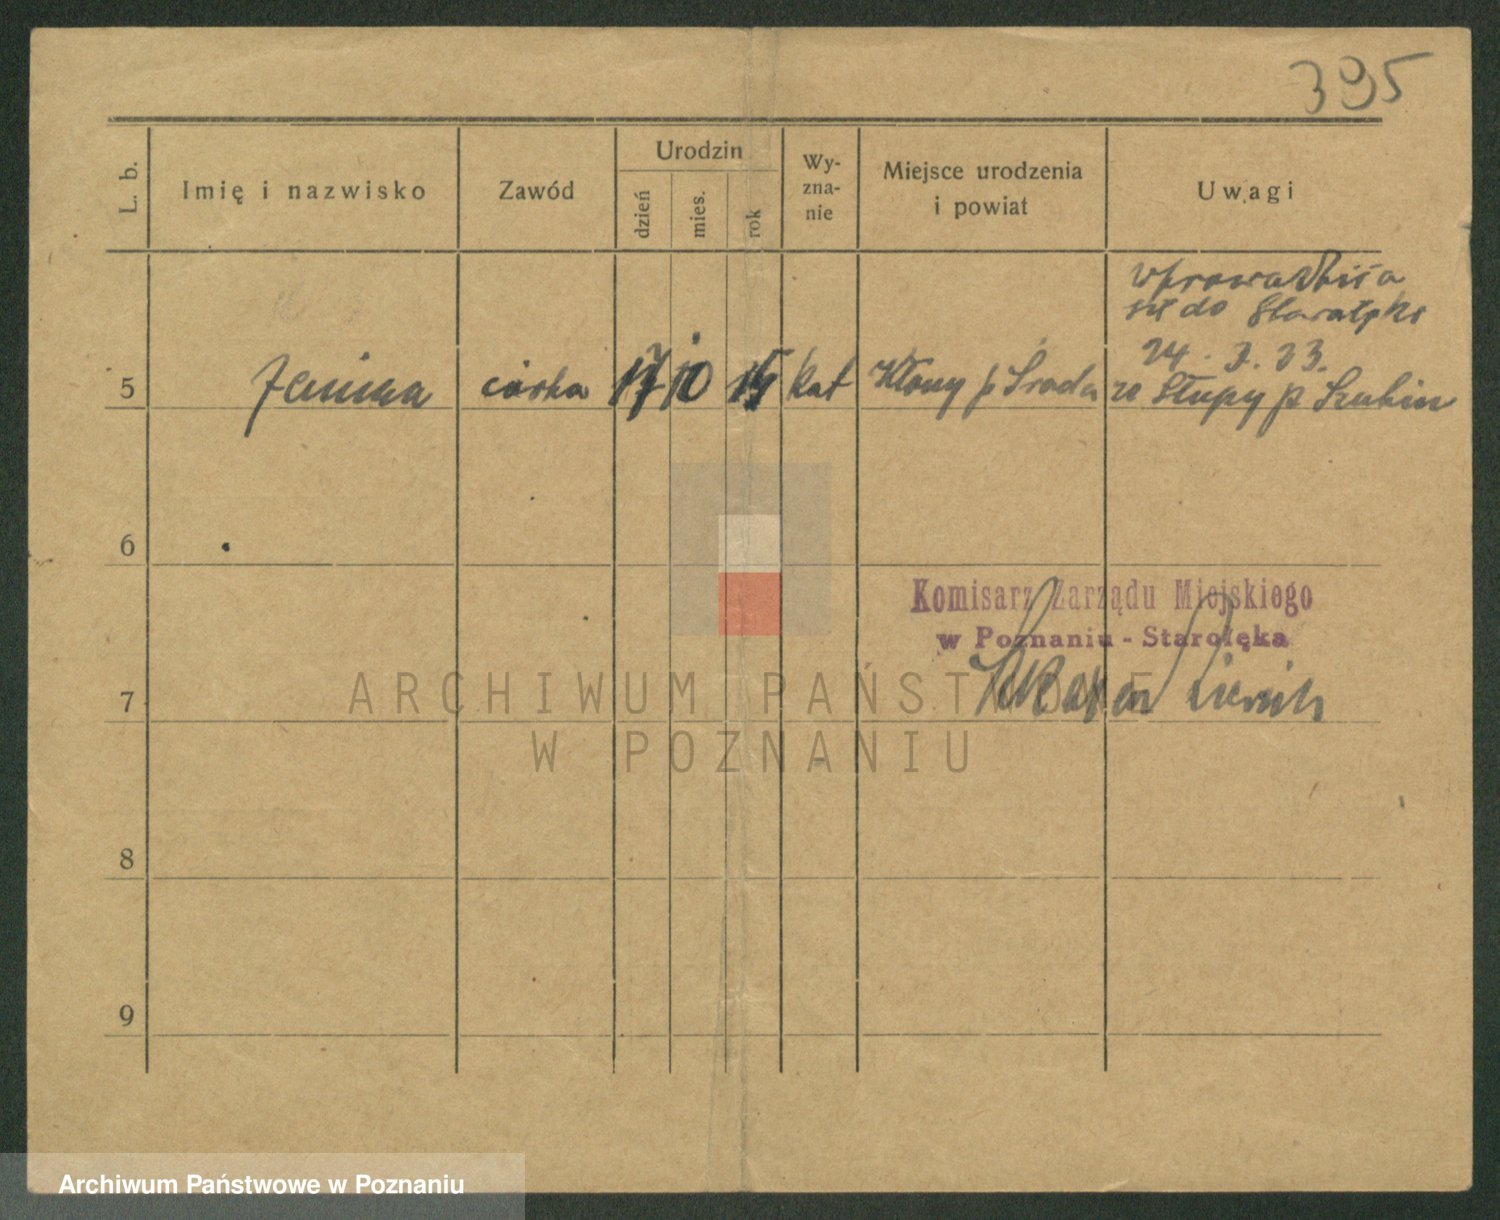 395
L. b.
Imię i nazwisko
Zawód
Urodzin
dzień
mies.
rok
Wy-
zna-
nie
Miejsce urodzenia
i powiat
Uwagi
wprowadziła
się do Starołęki
24. 3. 33.
5 Janina córka 17 10 15 kat Kłony p Środa ze Słupy p Szubin
6
Komisarz Zarządu Miejskiego
w Poznaniu - Starołęka
7
ARCHIWUM PAŃSTWOWE
W POZNANIU
8
9
Archiwum Państwowe w Poznaniu